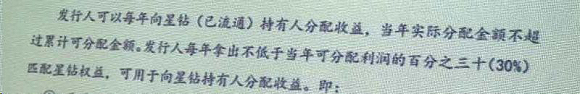 发行人可以每年向星钻（已流通）持有人分配收益，当年实际分配金额不超
过累计可分配金额。发行人每年拿出不低于当年可分配利润的百分之三十（30%）
匹配星钻权益，可用于向星钻持有人分配收益。即：